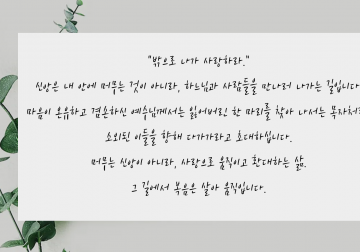 "밖으로 나가 사랑하라."
신앙은 내 안에 머무는 것이 아니라, 하느님과 사람들을 만나러 나가는 길입니다
마음이 온유하고 겸손하신 예수님께서는 잃어버린 한 마리를 찾아 나서는 목자처럼
소외된 이들을 향해 다가가라고 초대하십니다.
머무는 신앙이 아니라, 사랑으로 움직이고 환대하는 삶.
그 길에서 복음은 살아 움직입니다.